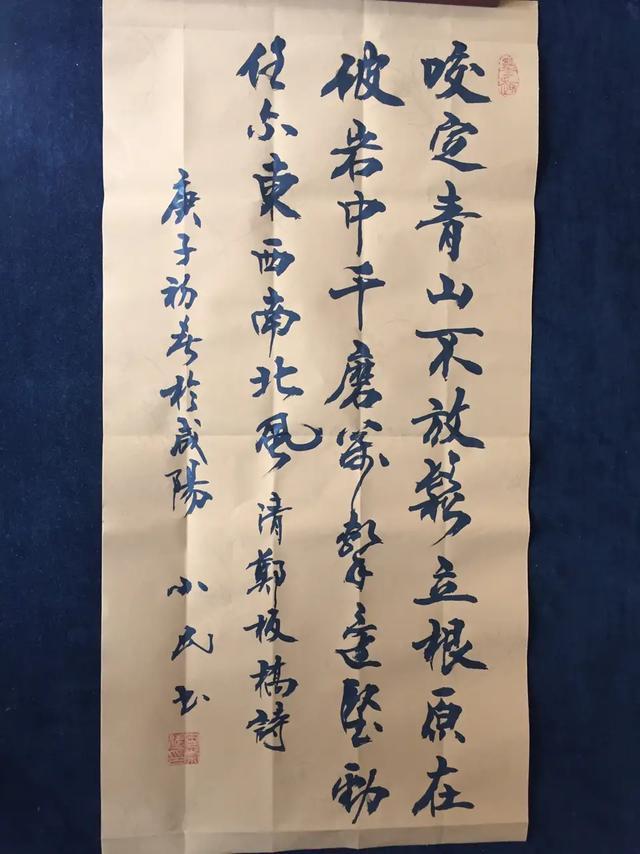 咬定青山不放鬆立根原在
破岩中千磨萬擊還堅勁
任尔東西南北風 清鄭板橋詩
庚子初春於咸陽 小民书